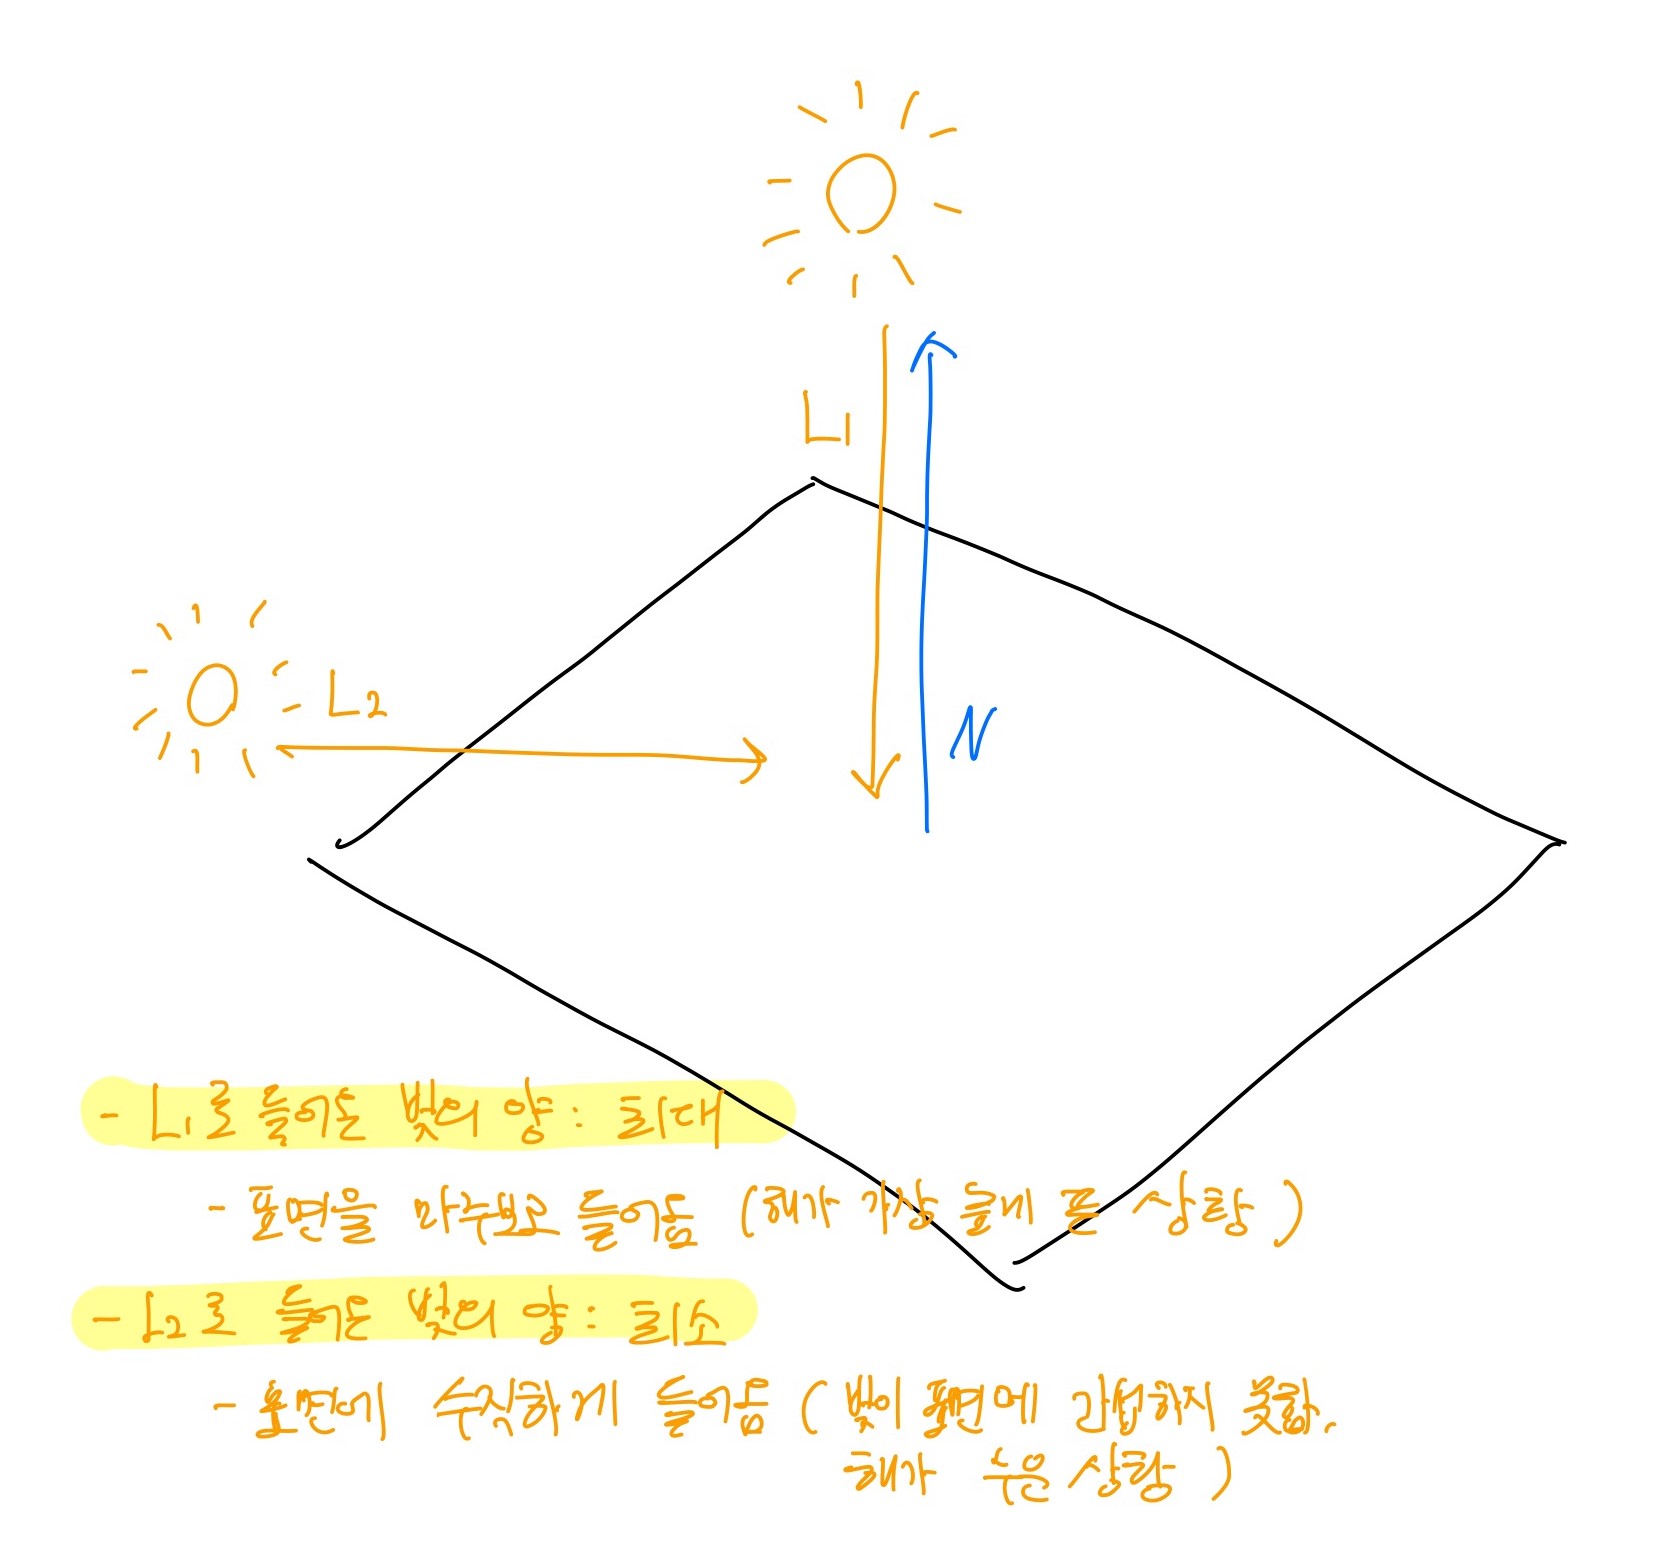 L1
L2
N
- L1로 들어온 빛의 양 : 최대
- 표면을 마주보고 들어옴 (해가 가장 높게 뜬 상황)
- L2로 들어온 빛의 양 : 최소
- 표면에 수직하게 들어옴 (빛이 표면에 간섭하지 못함.
해가 누운 상황)